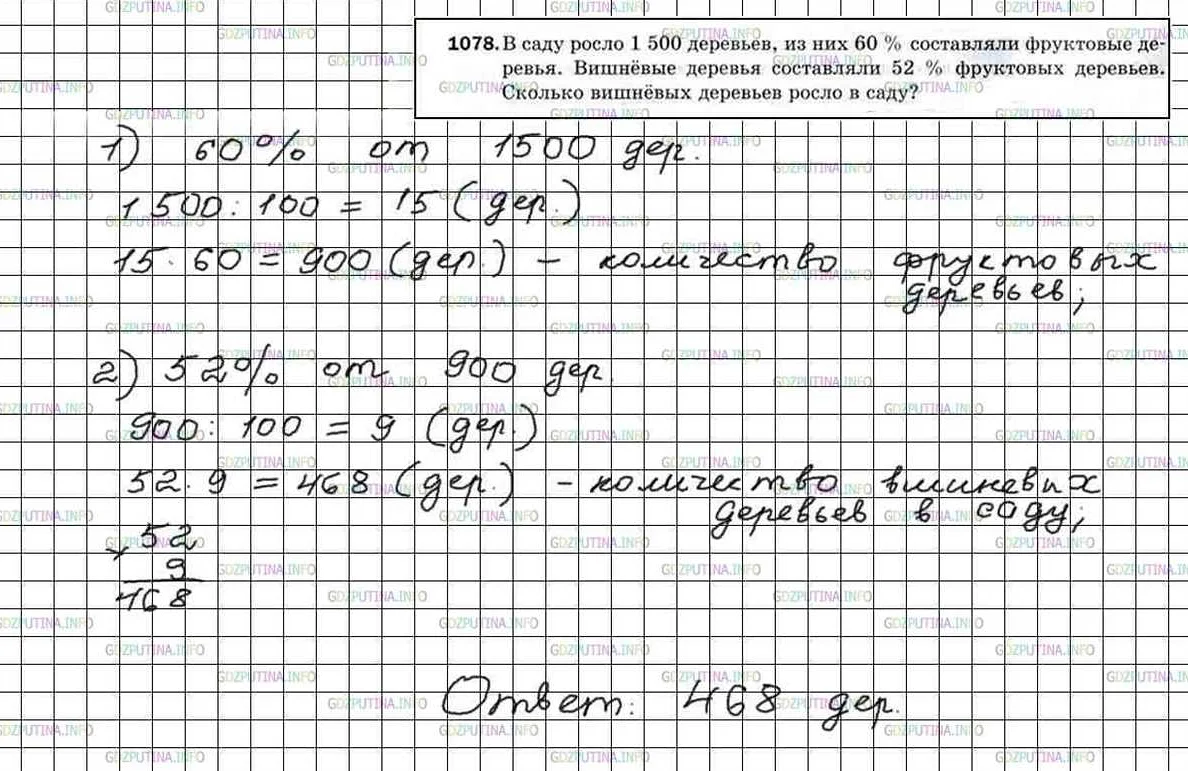 1078. В саду росло 1 500 деревьев, из них 60 % составляли фруктовые де-
ревья. Вишнёвые деревья составляли 52 % фруктовых деревьев.
Сколько вишнёвых деревьев росло в саду?
1) 60% от 1500 дер.
1 500 : 100 = 15 (дер.)
15 · 60 = 900 (дер.) – количество фруктовых
деревьев;
2) 52% от 900 дер.
900 : 100 = 9 (дер.)
52 · 9 = 468 (дер.) – количество вишневых
деревьев в саду;
× 52
9
468
Ответ: 468 дер.
GDZPUTINA.INFO